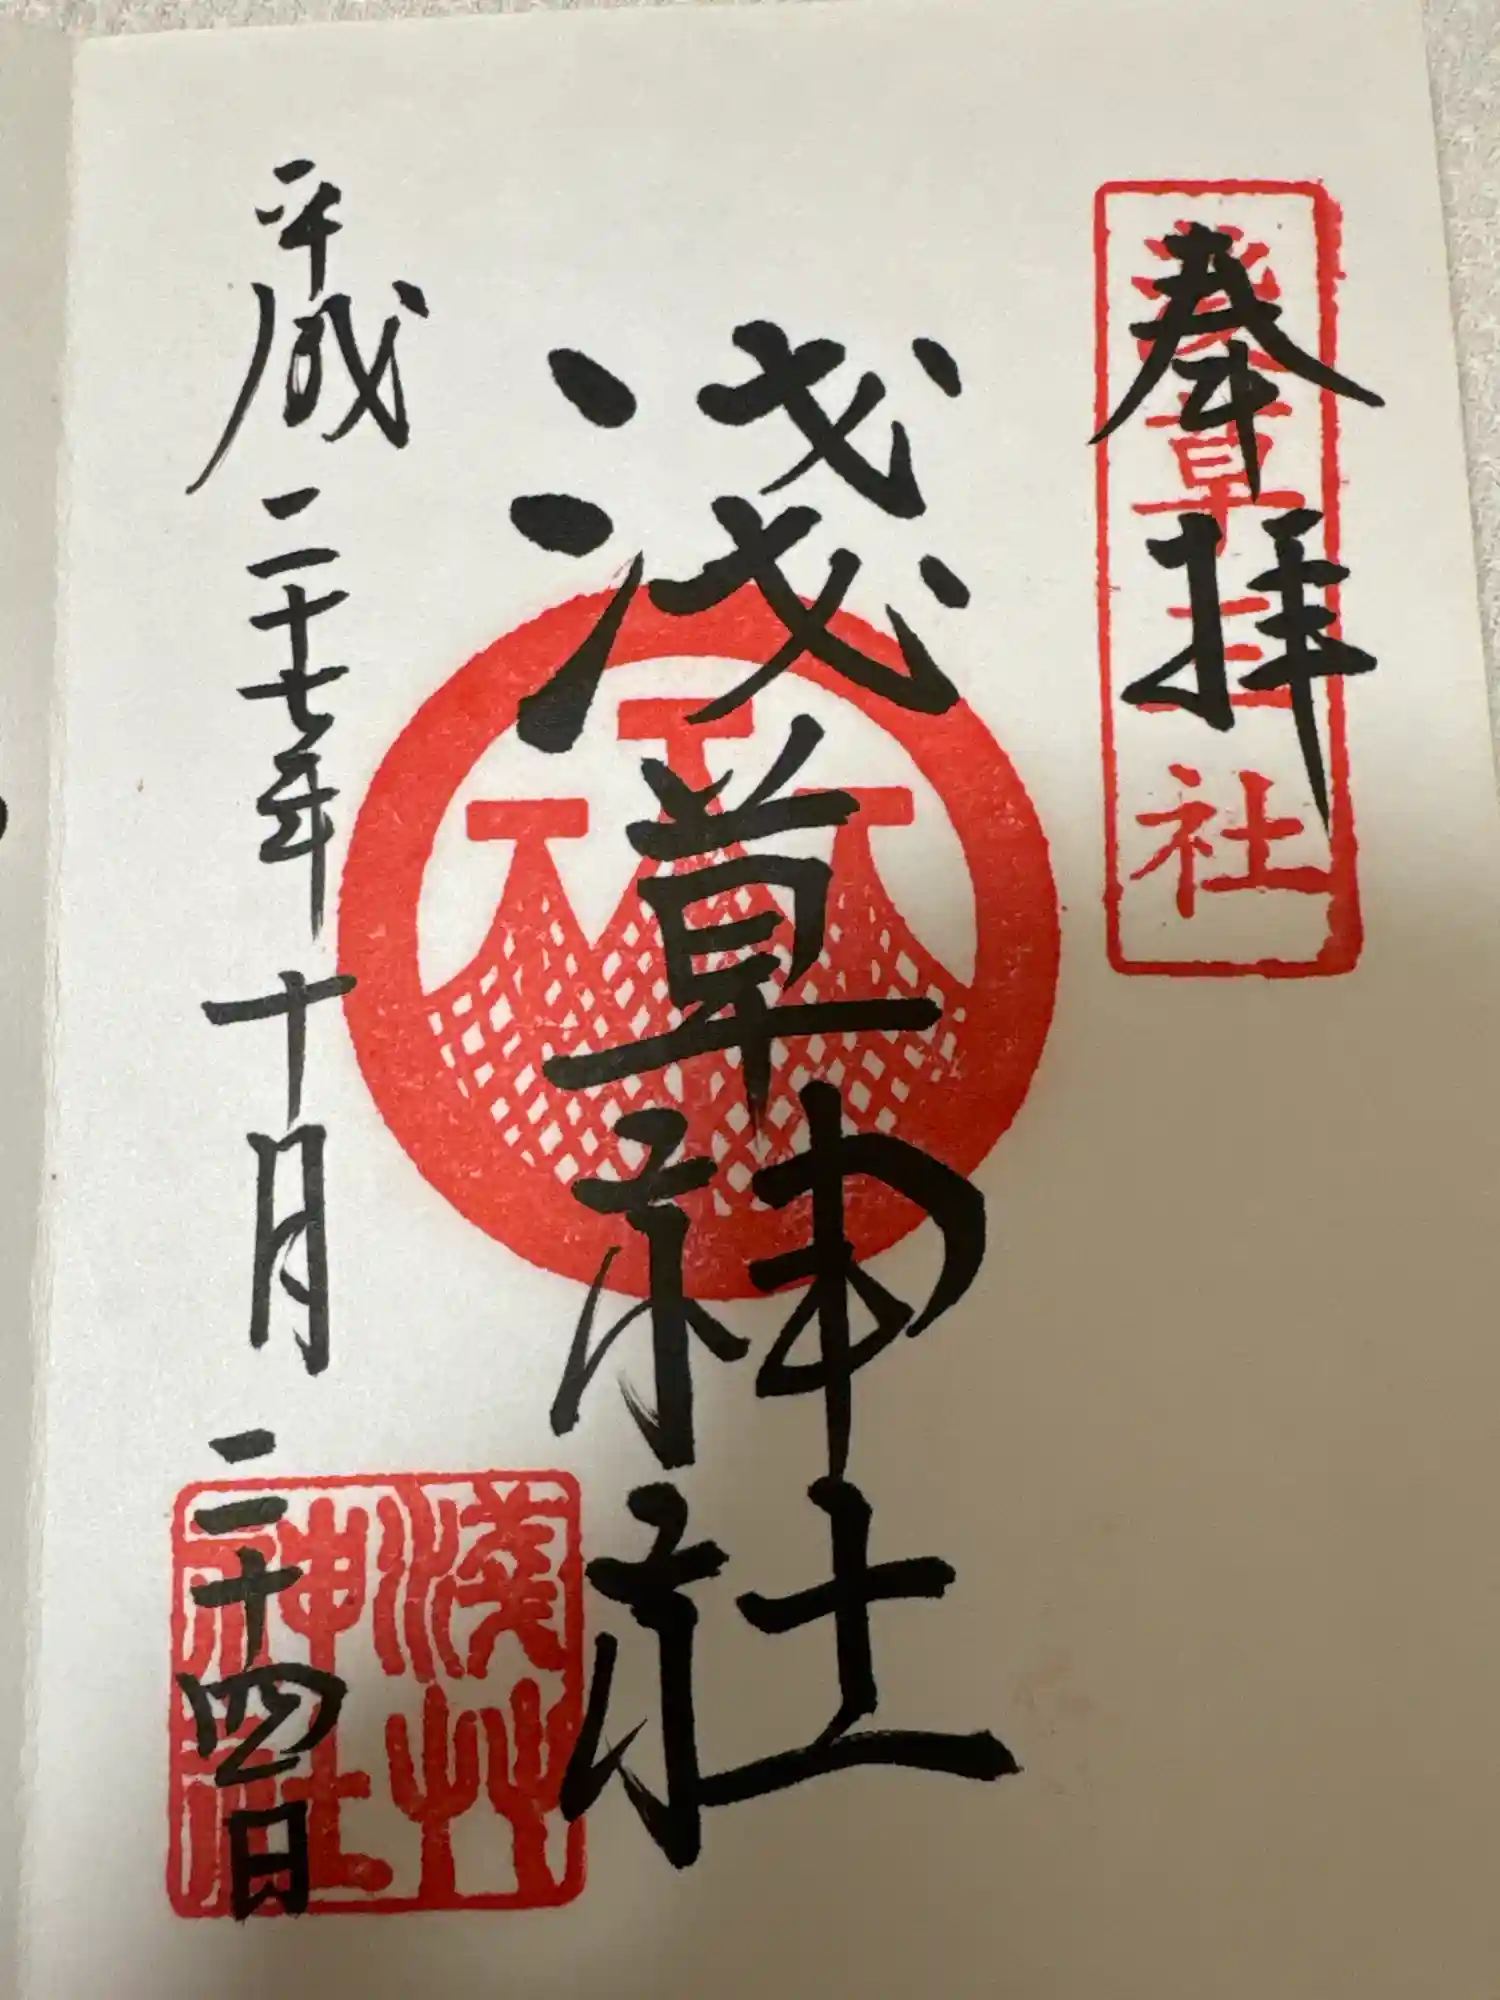 奉拝
草社
淺草神社
平成二十七年十月二十四日
淺艸神社